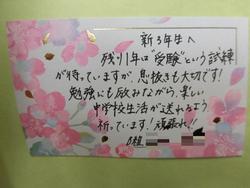 新3年生へ
残り1年は“受験”という試練
が待っていますが、息抜きも大切です!
勉強にも励みながら、楽しい
中学校生活が送れるよう
祈っています!頑張れ!!